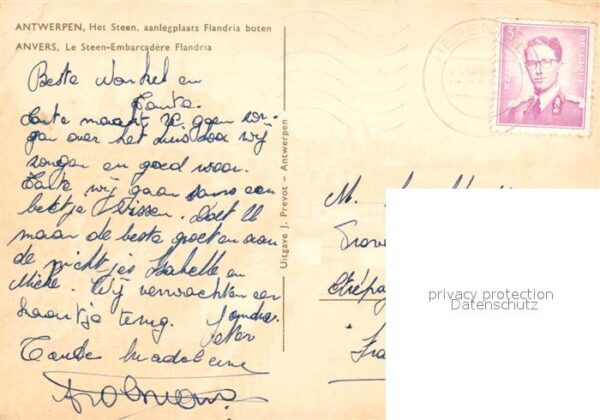 ANTWERPEN, Het Steen, aanlegplaats Flandria boten
ANVERS, Le Steen-Embarcadère Flandria
Beste nonkel en
Tante.
Tante maakt U geen zor-
gen over het huis door wij
zorgen er goed voor.
Tante wij gaan soms een
beetje vissen. Doet U
maar de beste groeten aan
de nichtjes Isabelle en
Mieke. Wij verwachten een
kaartje terug. Sandra
Peter
Tante Madeleine
Uitgave J. Prevot - Antwerpen
3F
BELGIQUE
HEREN
M.
Étrépag
privacy protection
Datenschutz